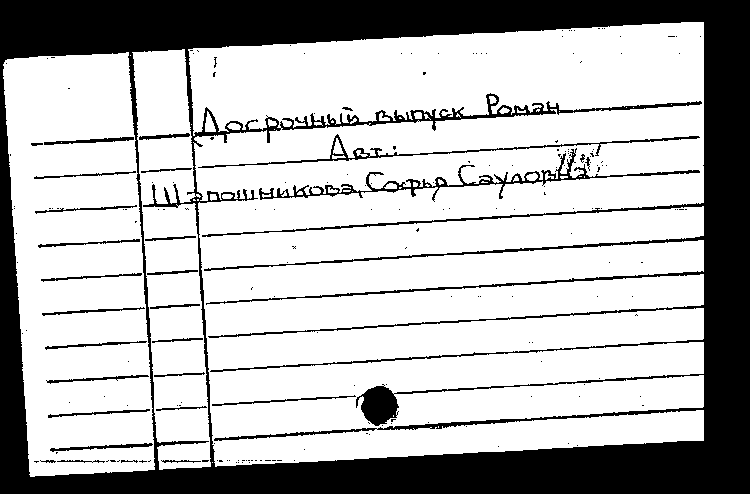 Досрочный выпуск Роман
Авт.:
Шапошникова, Софья Сауловна